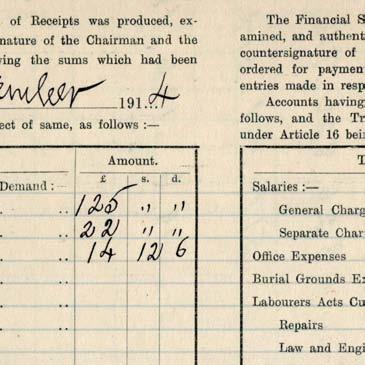 of Receipts was produced, ex-
nature of the Chairman and the
ving the sums which had been
ember 1914
ect of same, as follows :—
Amount.
Demand : £ s. d.
.. .. 125 " "
.. .. 22 " "
.. .. 14 12 6
.. ..
.. ..
.. ..
The Financial S
amined, and authent
countersignature of
ordered for paymen
entries made in resp
Accounts having
follows, and the Tr
under Article 16 bein
T
Salaries :—
General Charg
Separate Char
Office Expenses
Burial Grounds Ex
Labourers Acts Cu
Repairs
Law and Engi